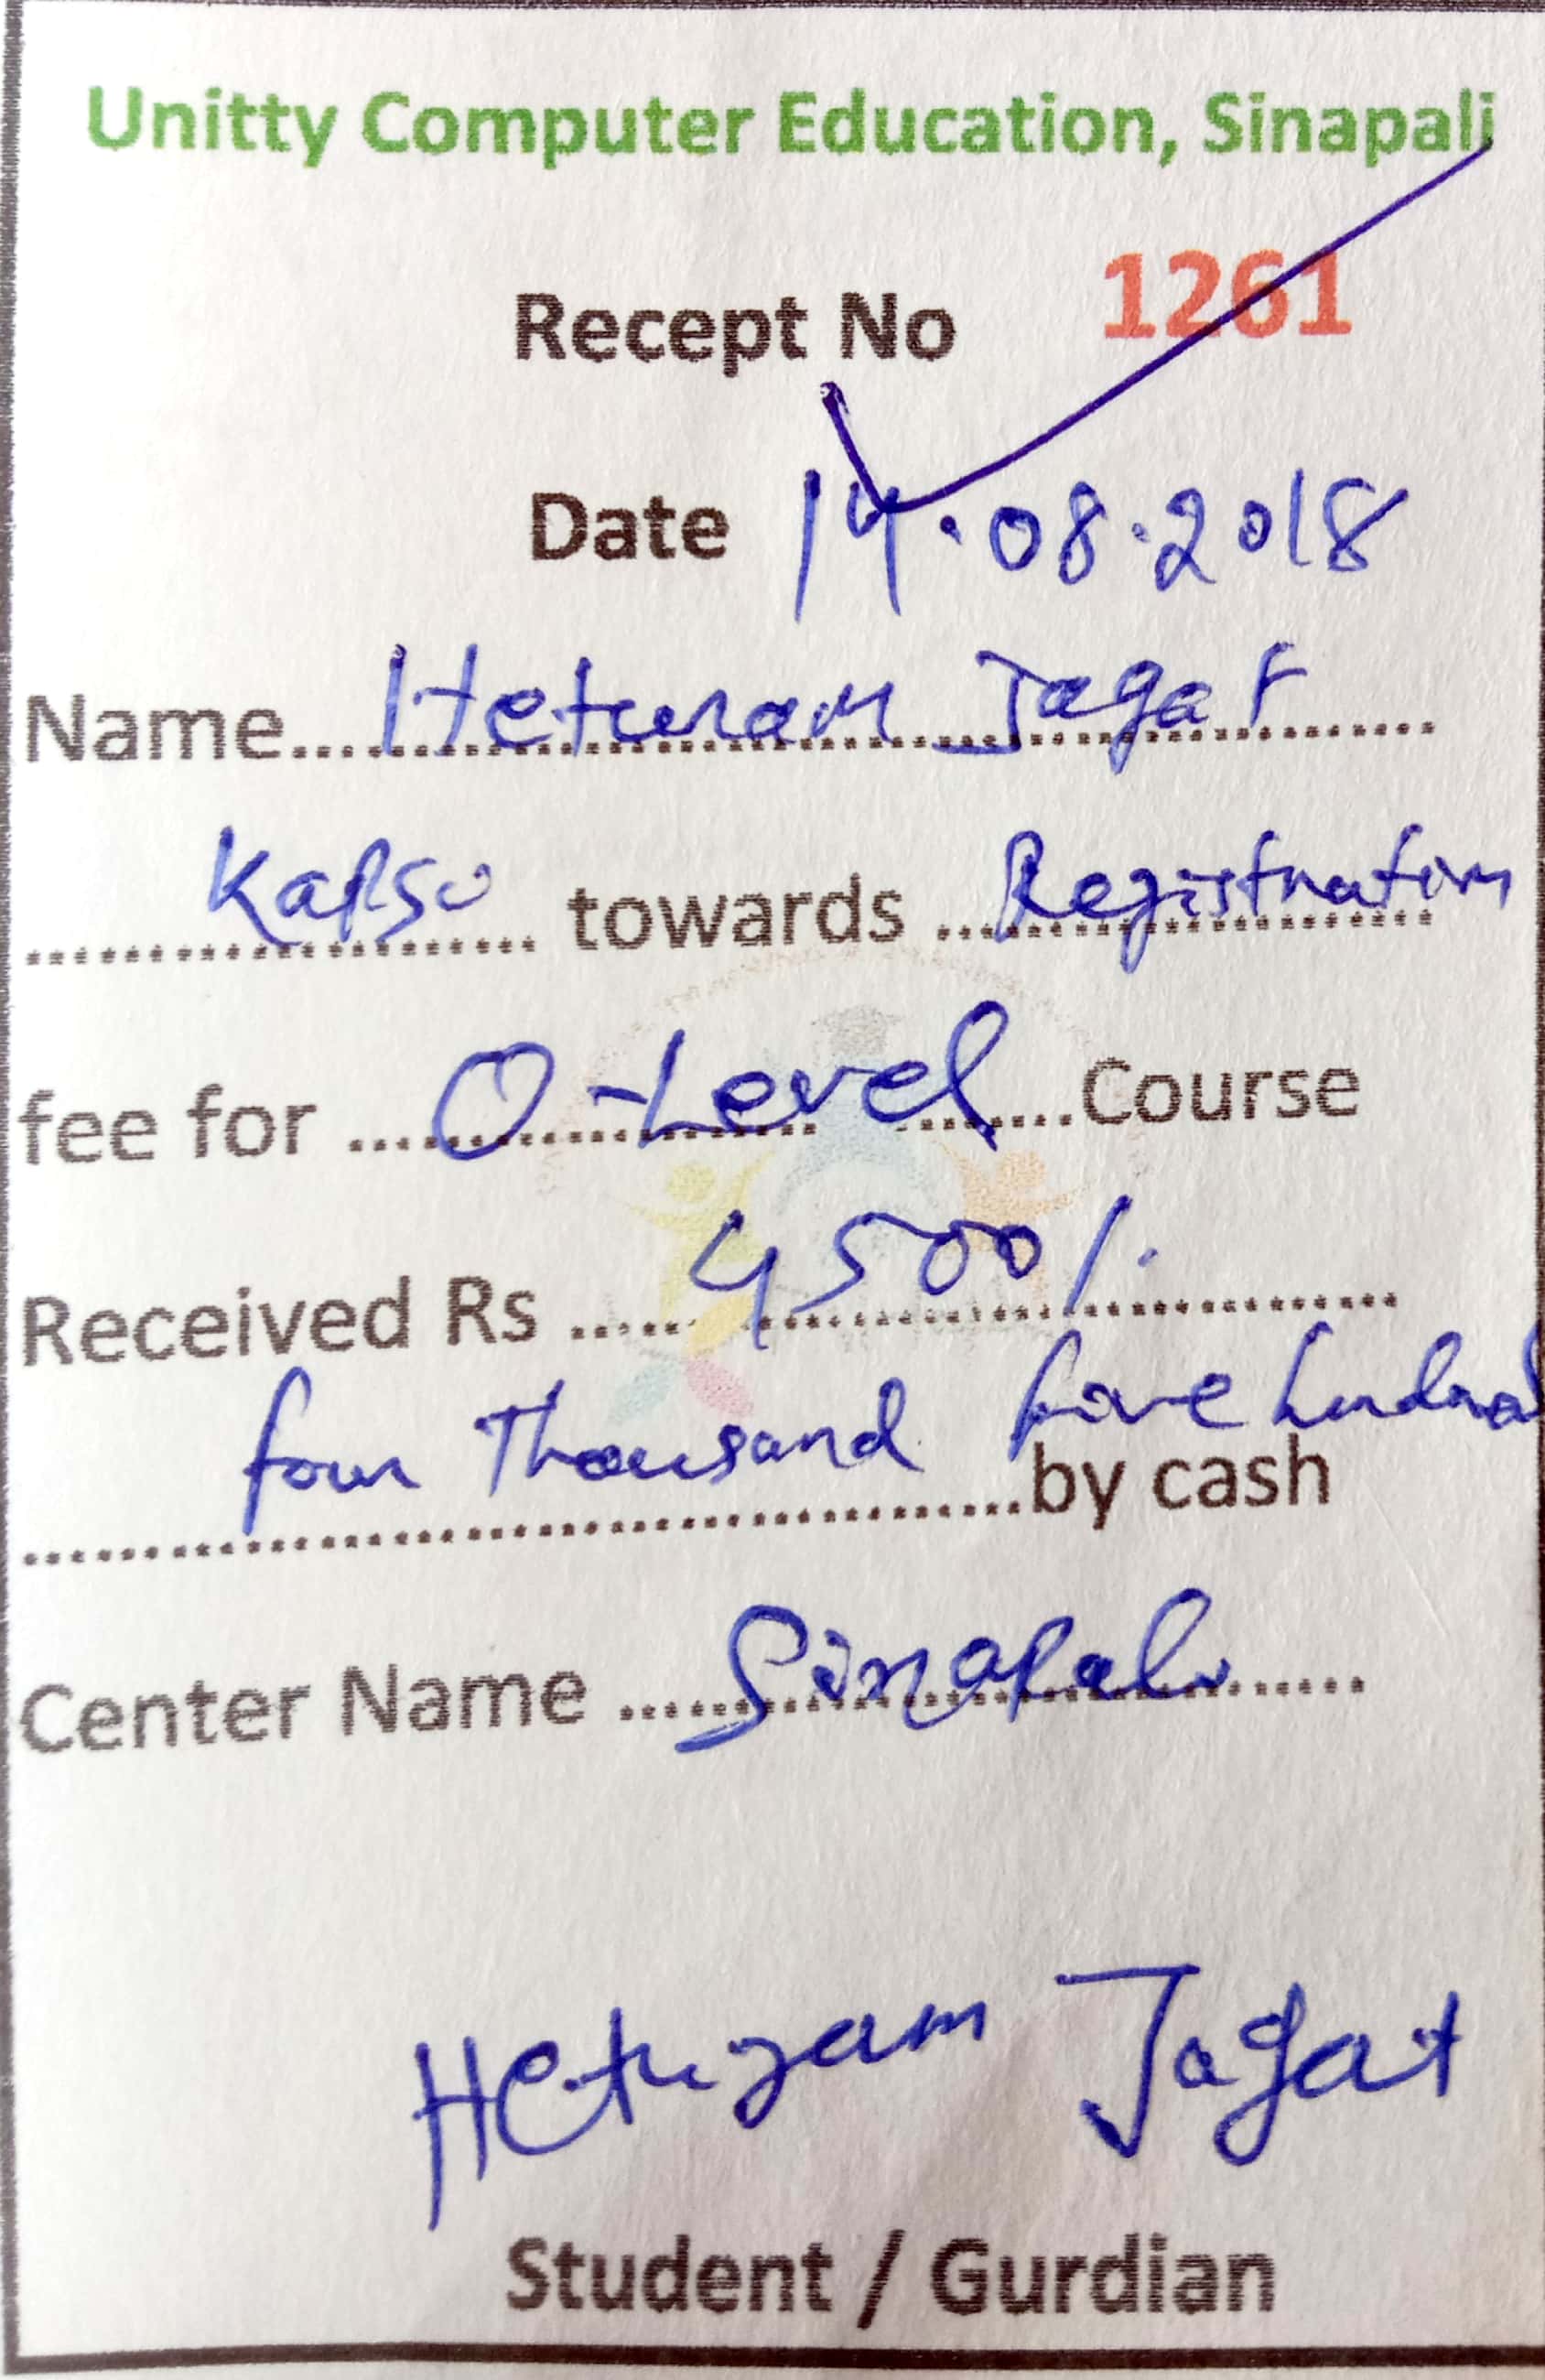 Unitty Computer Education, Sinapali
Recept No 1261
Date 14.08.2018
Name.... Heturam Jagat
Kapso towards Registration
fee for O-Level Course
Received Rs 4500/.
four Thousand five hundred
by cash
Center Name Sinapali
Heturam Jagat
Student / Gurdian